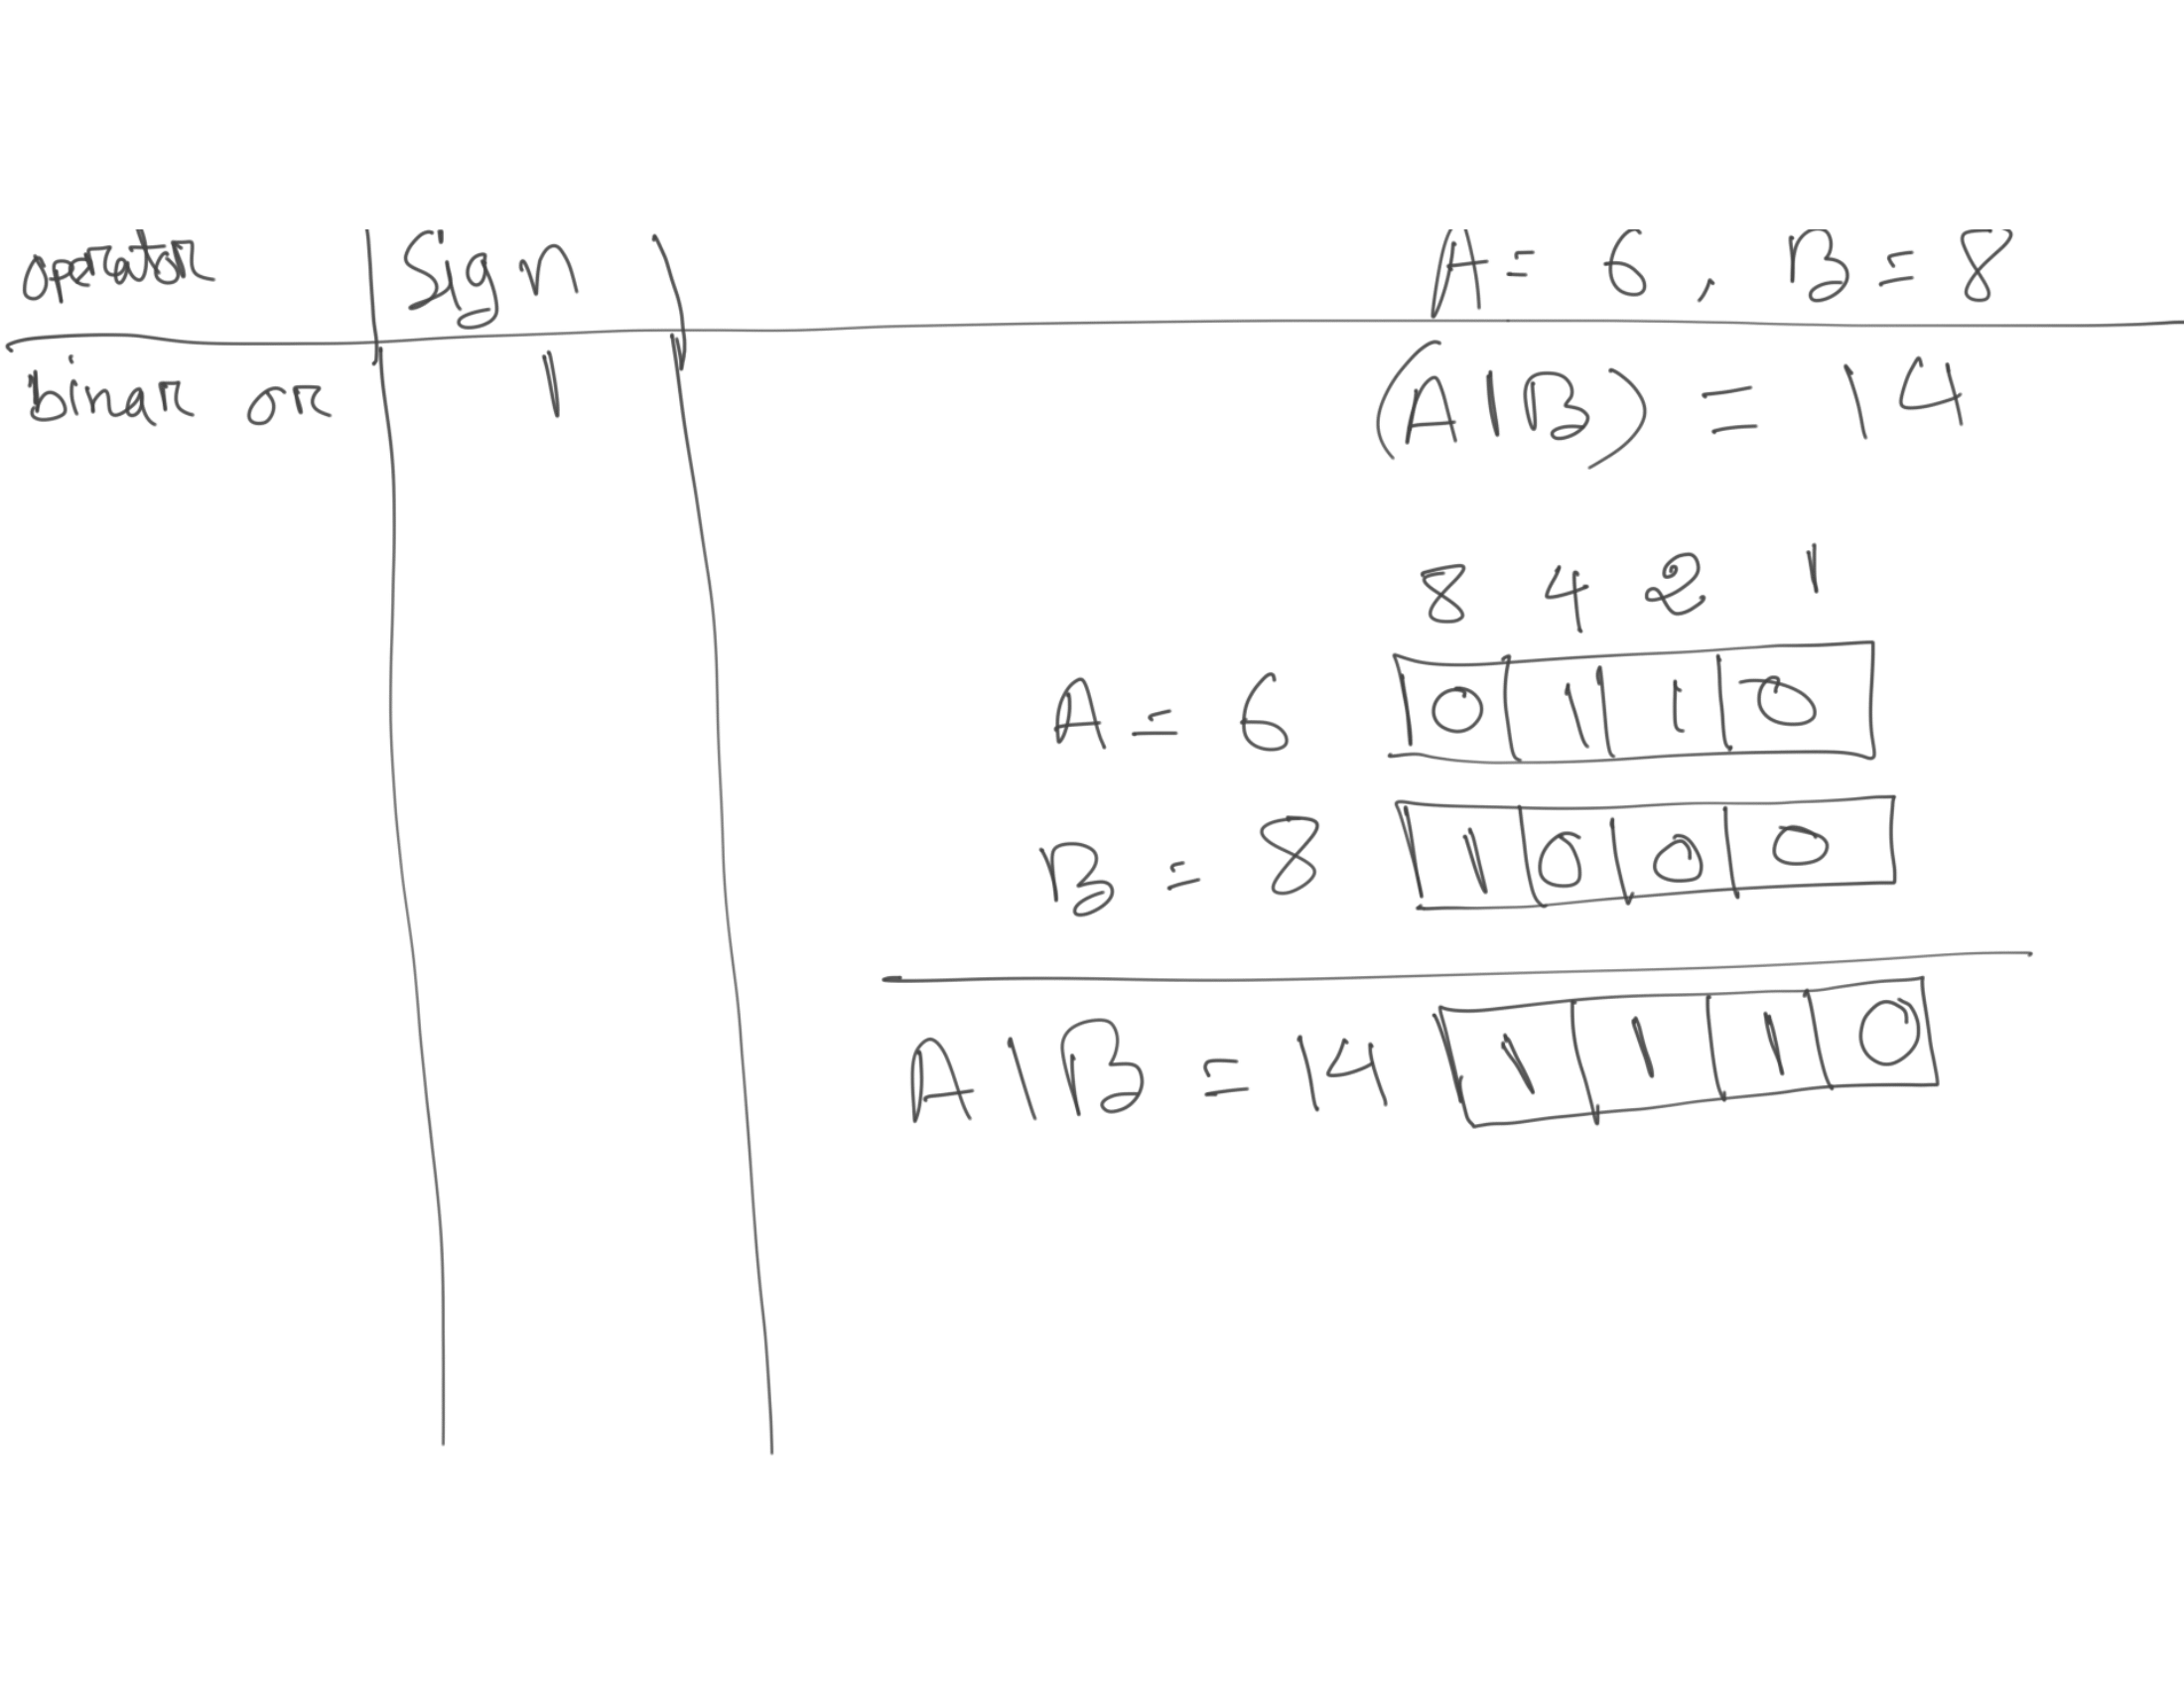 operator Sign A = 6 , B = 8
binar or | (A|B) = 14
8 4 2 1
A = 6 0 1 1 0
B = 8 1 0 0 0
A|B = 14 1 1 1 0